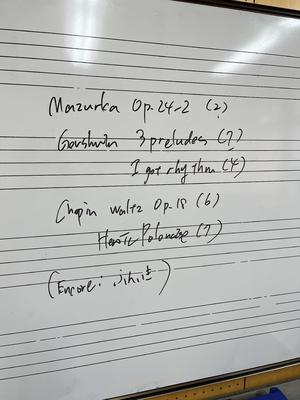 Mazurka Op.24-2 (2)
Gershwin 3 preludes (7)
I got rhythm (4)
Chopin waltz Op.18 (6)
Heroic Polonaise (7)
(Encore: